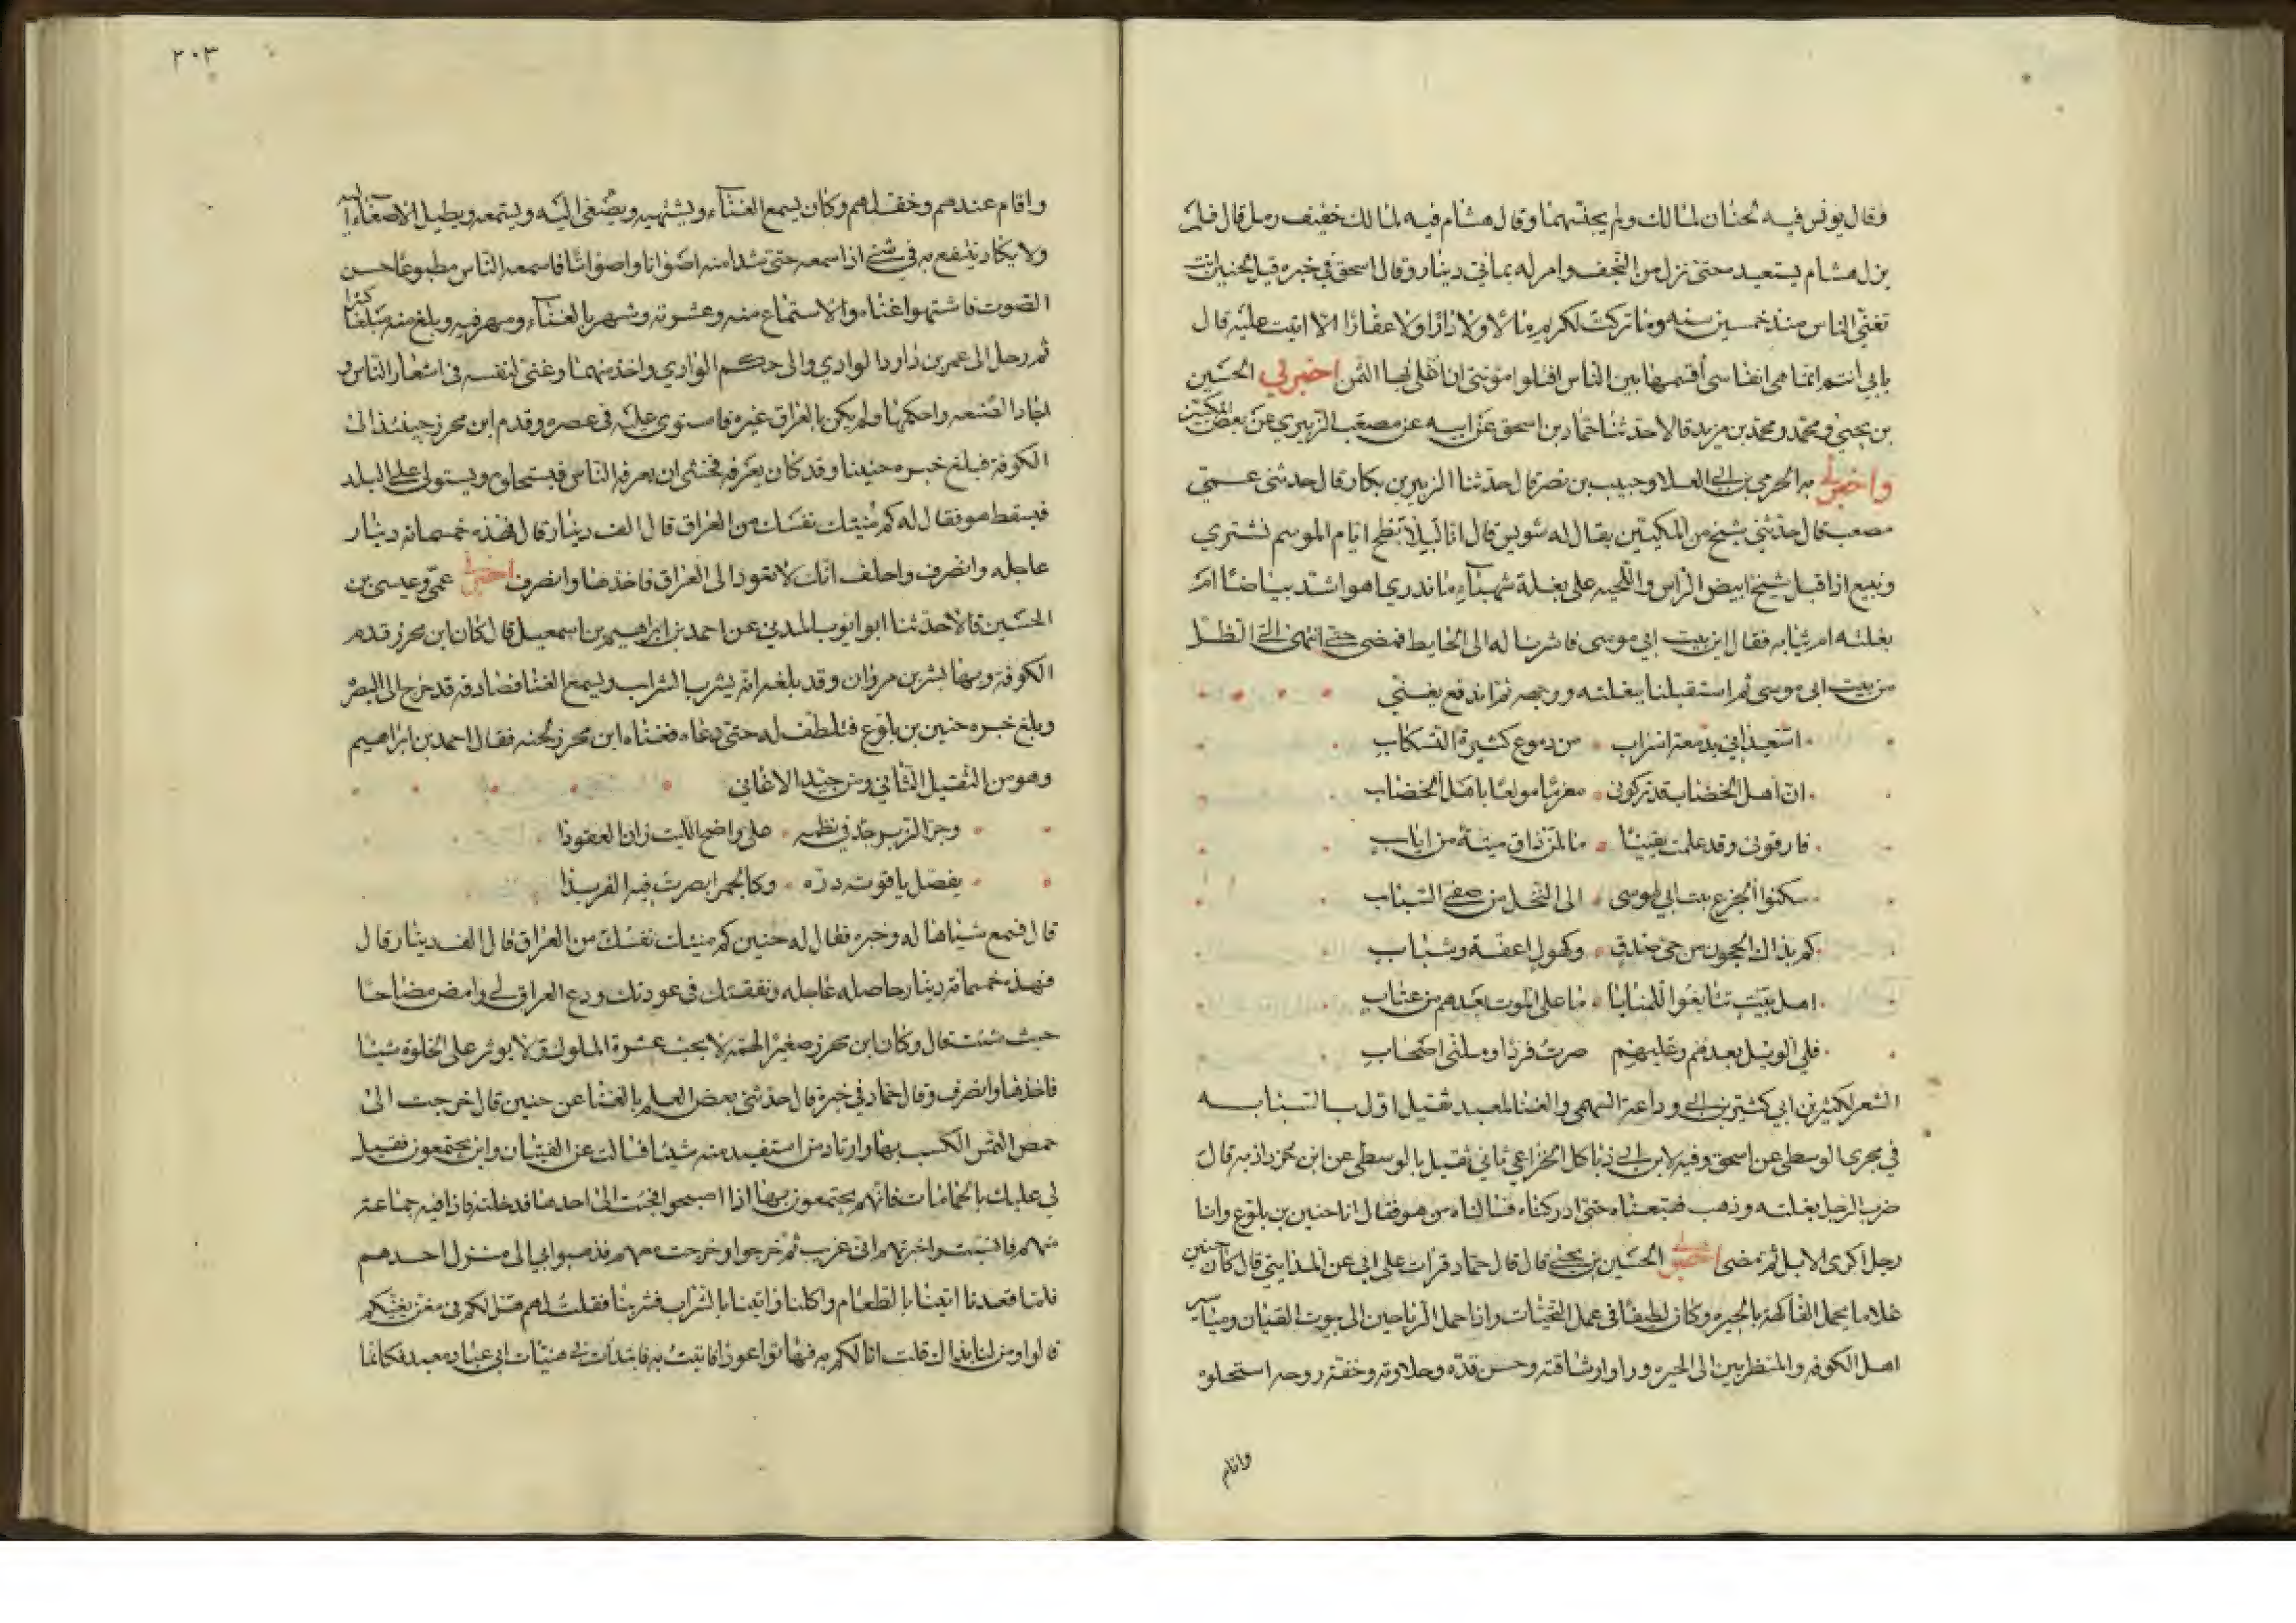 وقال يونس فيه لحنان لمالك ولم يجنسهما وقال هشام فيه لمالك خفيف رمل قال فلم
يزل هشام يستعيده حتى نزل من النجف وامر له بماتي دينار وقال اسحق في خبره قيل لحنين انت
تغني الناس منذ خمسين سنه وما تركت لكريم مالا ولا دارا ولا عقارا الا اتيت عليه قال
بابي انتم انما هي انفاسي أقسمها بين الناس افتلوامونني ان اغلي بها الثمن اخبرني الحسين
بن يحيي ومحمد ومحمد بن مزيد قالا حدثنا حماد بن اسحق عن ابيه عن مصعب الزبيري عن بعض المكيين
واخبرني به الحرمي بن ابي العلا وحبيب بن نصر قال حدثنا الزبير بن بكار قال حدثني عمي
مصعب قال حدثني شيخ من المكيين يقال له شويس قال انا لبالابطح ايام الموسم نشتري
ونبيع اذ اقبل شيخ ابيض الراس واللحيه على بغلة شهباء ما ندري اهو اشد بياضا ام
بغلته ام ثيابه فقال اين بيت ابي موسى فاشرنا له الى الحايط فمضى حتى انتهى الى الظل
من بيت ابي موسى ثم استقبلنا ببغلته ووجهه ثم اندفع يغني
اسعيداني بدمعة اسراب من دموع كثيرة التسكاب
ان اهل الخضاب قد تركوني مغرما مولعا باهل الخضاب
فارقوني وقد علمت يقينا ما لمن ذاق ميتة من اياب
سكنوا الجزع بيت ابي موسى الى النخل من صفي السباب
كم بذاك الحجون من حي صدق وكهول اعفة وشباب
اهل بيت تتابعوا للمنايا ما على الموت بعدهم من عتاب
فلي الويل بعدهم وعليهم صرت فردا وملني اصحاب
الشعر لكثير بن ابي كثير بن ابي وداعة السهمي والغنا لمعبد ثقيل اول بالسبابه
في مجرى الوسطى عن اسحق وفيه لابن ابي دباكل الخزاعي ثاني ثقيل بالوسطى عن ابن خرداذبه قال
ضرب الرجل بغلته وذهب فتبعناه حتى ادركناه فسالناه من هو فقال انا حنين بن بلوع وانا
رجل اكري الابل ثم مضى اخبرني الحسين بن يحيى قال قال حماد قرات على ابي عن المدايني قال كان حنين
غلاما يحمل الفاكهة بالحيره وكان لطيفا في عمل التحيات واذا حمل الرياحين الى بيوت الفتيان ومياسير
اهل الكوفه والمتطربين الى الحيره وراوا رشاقته وحسن قده وحلاوته وخفة روحه استحلوه
واقام
٢٠٣
واقام عندهم وخف لهم وكان يسمع الغناء ويشتهيه ويصغي اليه ويستمعه ويطيل الاصغاء اليه
ولا يكاد ينتفع به في شي اذا سمعه حتى شدا منه اصواتا واصواتا فاسمعه الناس مطبوعا حسن
الصوت فاشتهوا غناه والاستماع منه وعشرته وشهر بالغناء ومهر فيه وبلغ منه مبلغا كبيرا
ثم رحل الى عمر بن داود الوادي والى حكم الوادي واخذ منهما وغنى لنفسه في اشعار الناس و
اجاد الصنعه واحكمها ولم يكن بالعراق غيره فاستوى عليه في عصره وقدم ابن محرز حينئذ الى
الكوفة فبلغ خبره حنينا وقد كان يعرفه فخشى ان يعرفه الناس فيستحلوه ويستولى على البلد
فيسقط هو فقال له كم منيتك نفسك من العراق قال الف دينار قال فهذه خمسمائه دينار
عاجله وانصرف واحلف انك لا تعود الى العراق فاخذها وانصرف اخبرني عمي وعيسى بن
الحسين قالا حدثنا ابو ايوب المدني عن احمد بن ابراهيم بن اسمعيل قال كان ابن محرز قدم
الكوفة وبها بشر بن مروان وقد بلغه انه يشرب الشراب ويسمع الغنا فصادفه قد خرج الى البصره
وبلغ خبره حنين بن بلوع فتلطف له حتى دعاه فغناه ابن محرز لحنه فقال احمد بن ابراهيم
وهو من الثقيل الثاني ومن جيد الاغاني
وحر الزبرجد في نظمه على واضح الليت زان العقودا
يفصل ياقوته دره وكالجمر ابصرت فيه الفريدا
قال فسمع شيئا هاله وخيره فقال له حنين كم منيتك نفسك من العراق قال الف دينار قال
فهذه خمسمائة دينار حاصله عاجله ونفقتك في عودتك ودع العراق لي وامض مصاحبا
حيث شئت قال وكان ابن محرز صغير الهمه لا يحب عشرة الملوك ولا يوثر على الخلوة شيئا
فاخذها وانصرف وقال حماد في خبره قال حدثني بعض العلم بالغنا عن حنين قال خرجت الى
حمص التمس الكسب بها وارتاد من استفيد منه شيئا فسالت عن الفتيان واين يجتمعون فقيل
لي عليك بالحمامات فانهم يجتمعون بها اذا اصبحوا فجئت الى احدها فدخلته فاذا فيه جماعة
منهم فانتسبت واخبرتهم اني غريب ثم خرجوا وخرجت معهم فذهبوا بي الى منزل احدهم
فلما قعدنا اتينا بالطعام واكلنا واتينا بالشراب فشربنا فقلت لهم هل لكم في مغن يغنيكم
قالوا ومن لنا بذاك قلت انا لكم به فهاتوا عودا فاتيت به فابتدأت في هنيات ابي عباد معبد فكانما